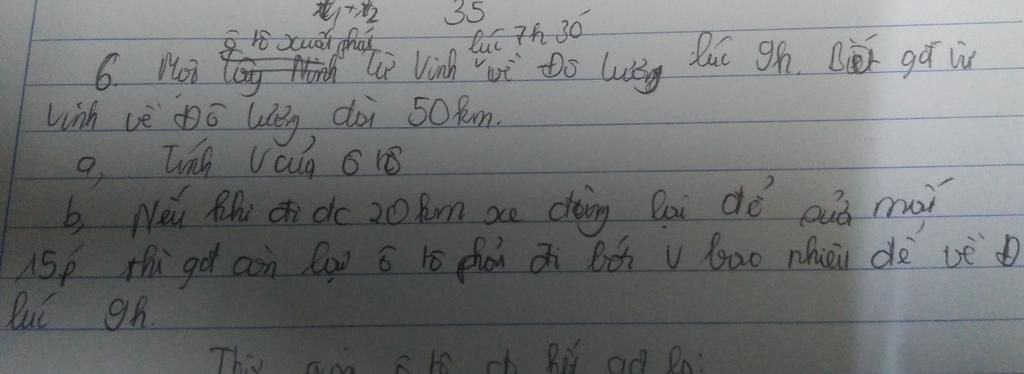 t₁+t₂ 35
ô tô xuất phát lúc 7h 30
6. Một từ Vinh về Đô lương lúc 9h. Biết gđ từ
Vinh về Đô lương dài 50km.
a, Tính V của ô tô
b, Nếu khi đi dc 20km xe dừng lại để sửa mất
15p thì gđ còn lại ô tô phải đi với V bao nhiêu để về Đ
lúc 9h.
ô tô đi hết gđ